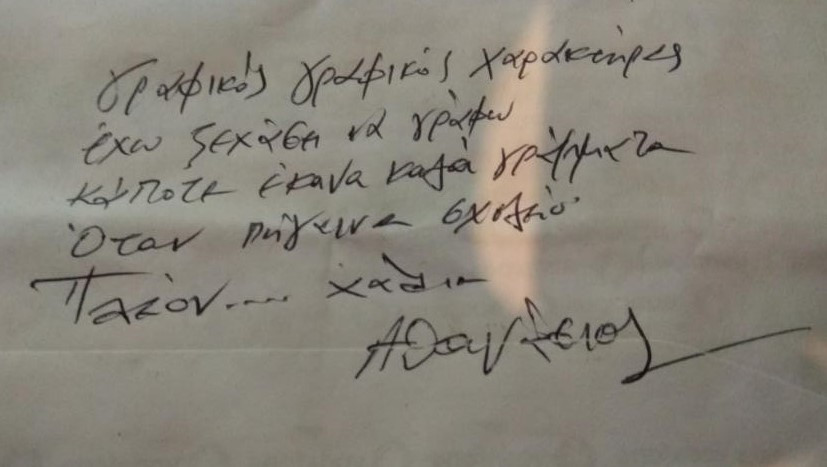 γραφικός γραφικός χαρακτήρας
έχω ξεχάσει να γράφω
κάποτε έκανα καλά γράμματα
Όταν πήγαινα σχολείο.
Πλέον.... χάλια
Αθανάσιος